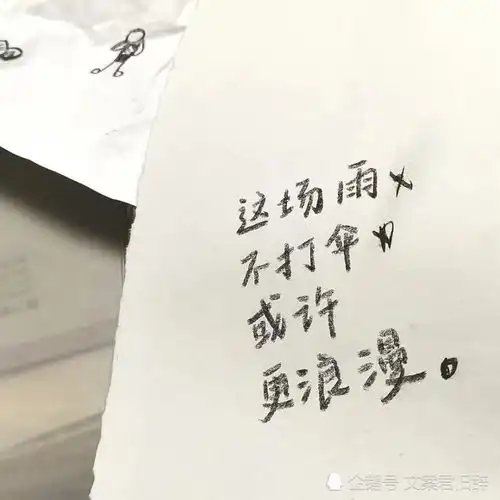 这场雨
不打伞
或许
更浪漫。
企鹅号 文案君归辞